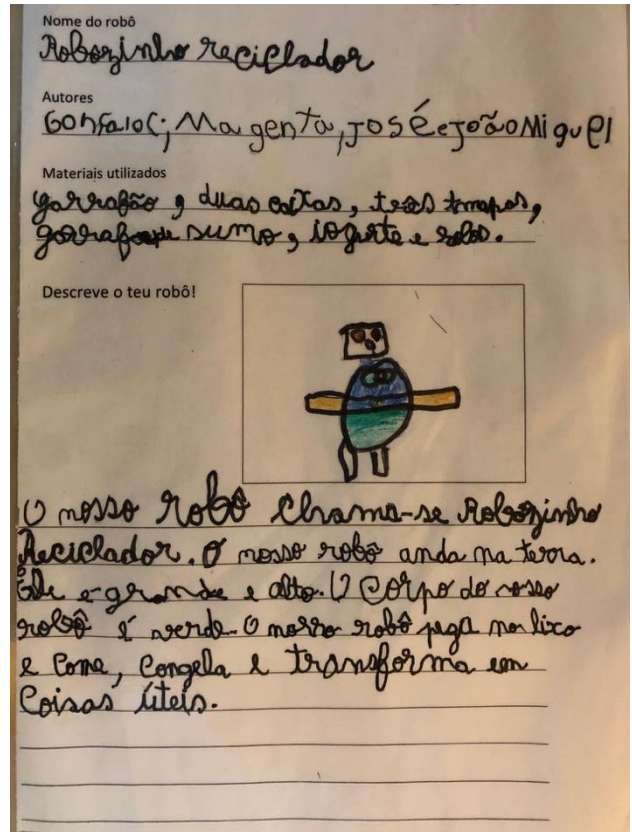 Nome do robô
Robozinho reciclador
Autores
Gonçalo C; Magenta, José e João Miguel
Materiais utilizados
garrafão, duas caixas, três tampas,
sumo, iogurte e rolos.
Descreve o teu robô!
O nosso robô chama-se Robozinho
Reciclador. O nosso robô anda na terra.
Ele e grande e alto. O corpo do nosso
robô é verde. O nosso robô pega no lixo
e come, congela e transforma em
coisas úteis.